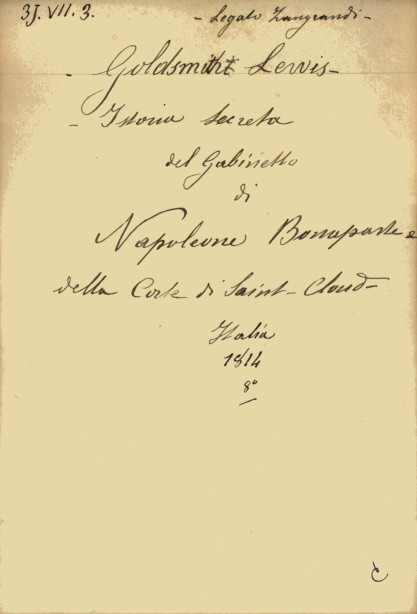 3J. VII. 3.
- Legato Zangrandi -
- Goldsmitht Lewis -
- Istoria secreta
del Gabinetto
di
Napoleone Bonaparte e
della Corte di Saint-Cloud -
Italia
1814
8º